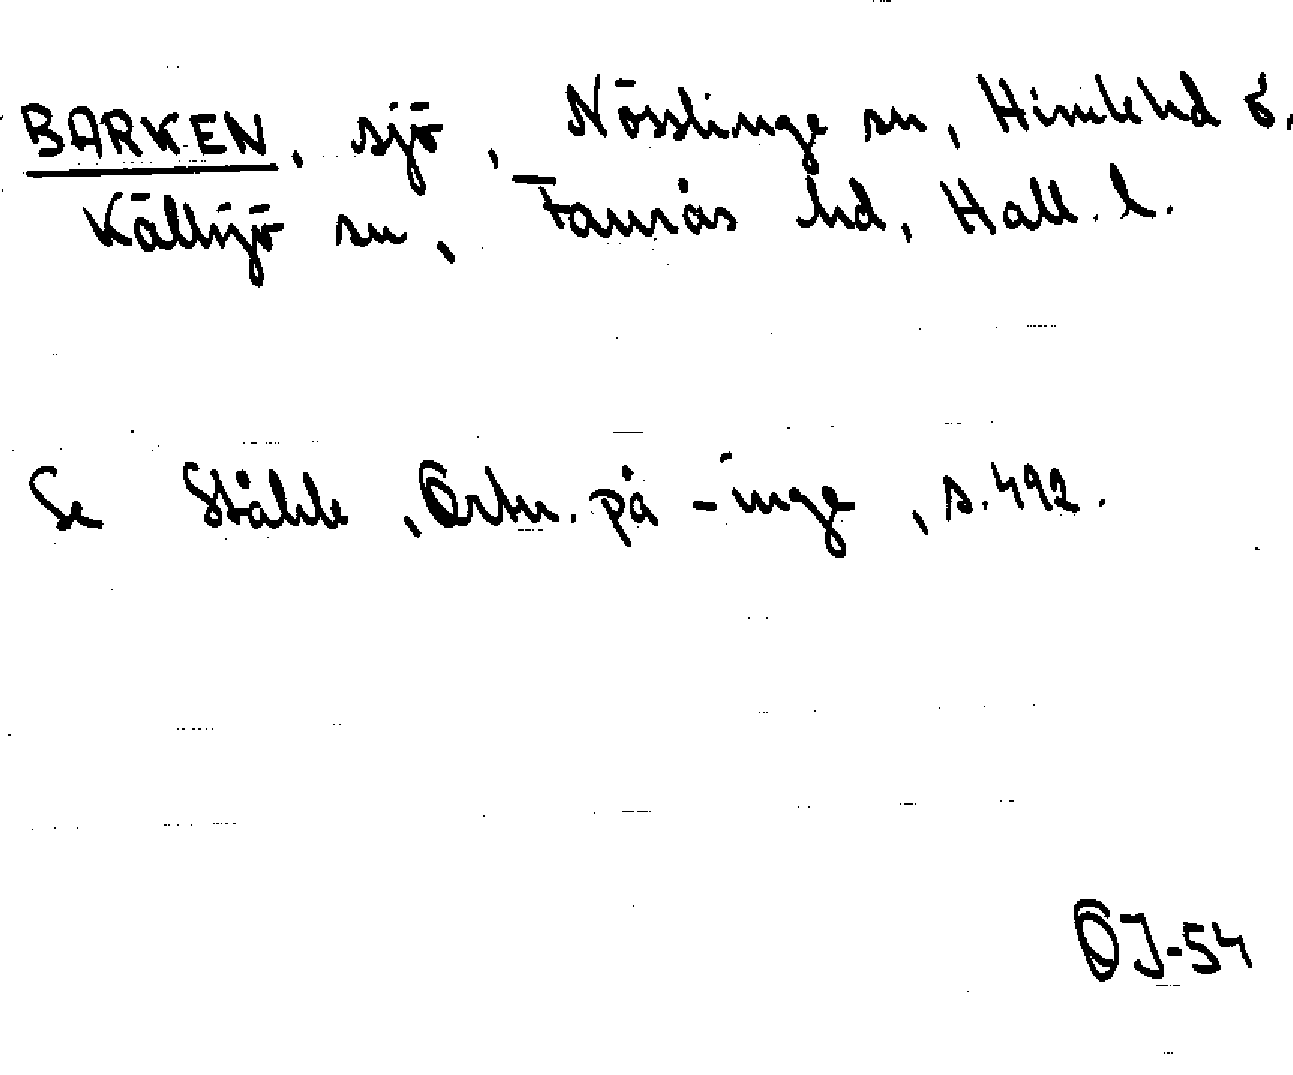 BARKEN, sjö, Nösslinge sn, Himle hd o.
Källsjö sn, Faurås hd, Hall. l.
Se Ståhle, Ortn. på -inge, s. 492.
OJ-54